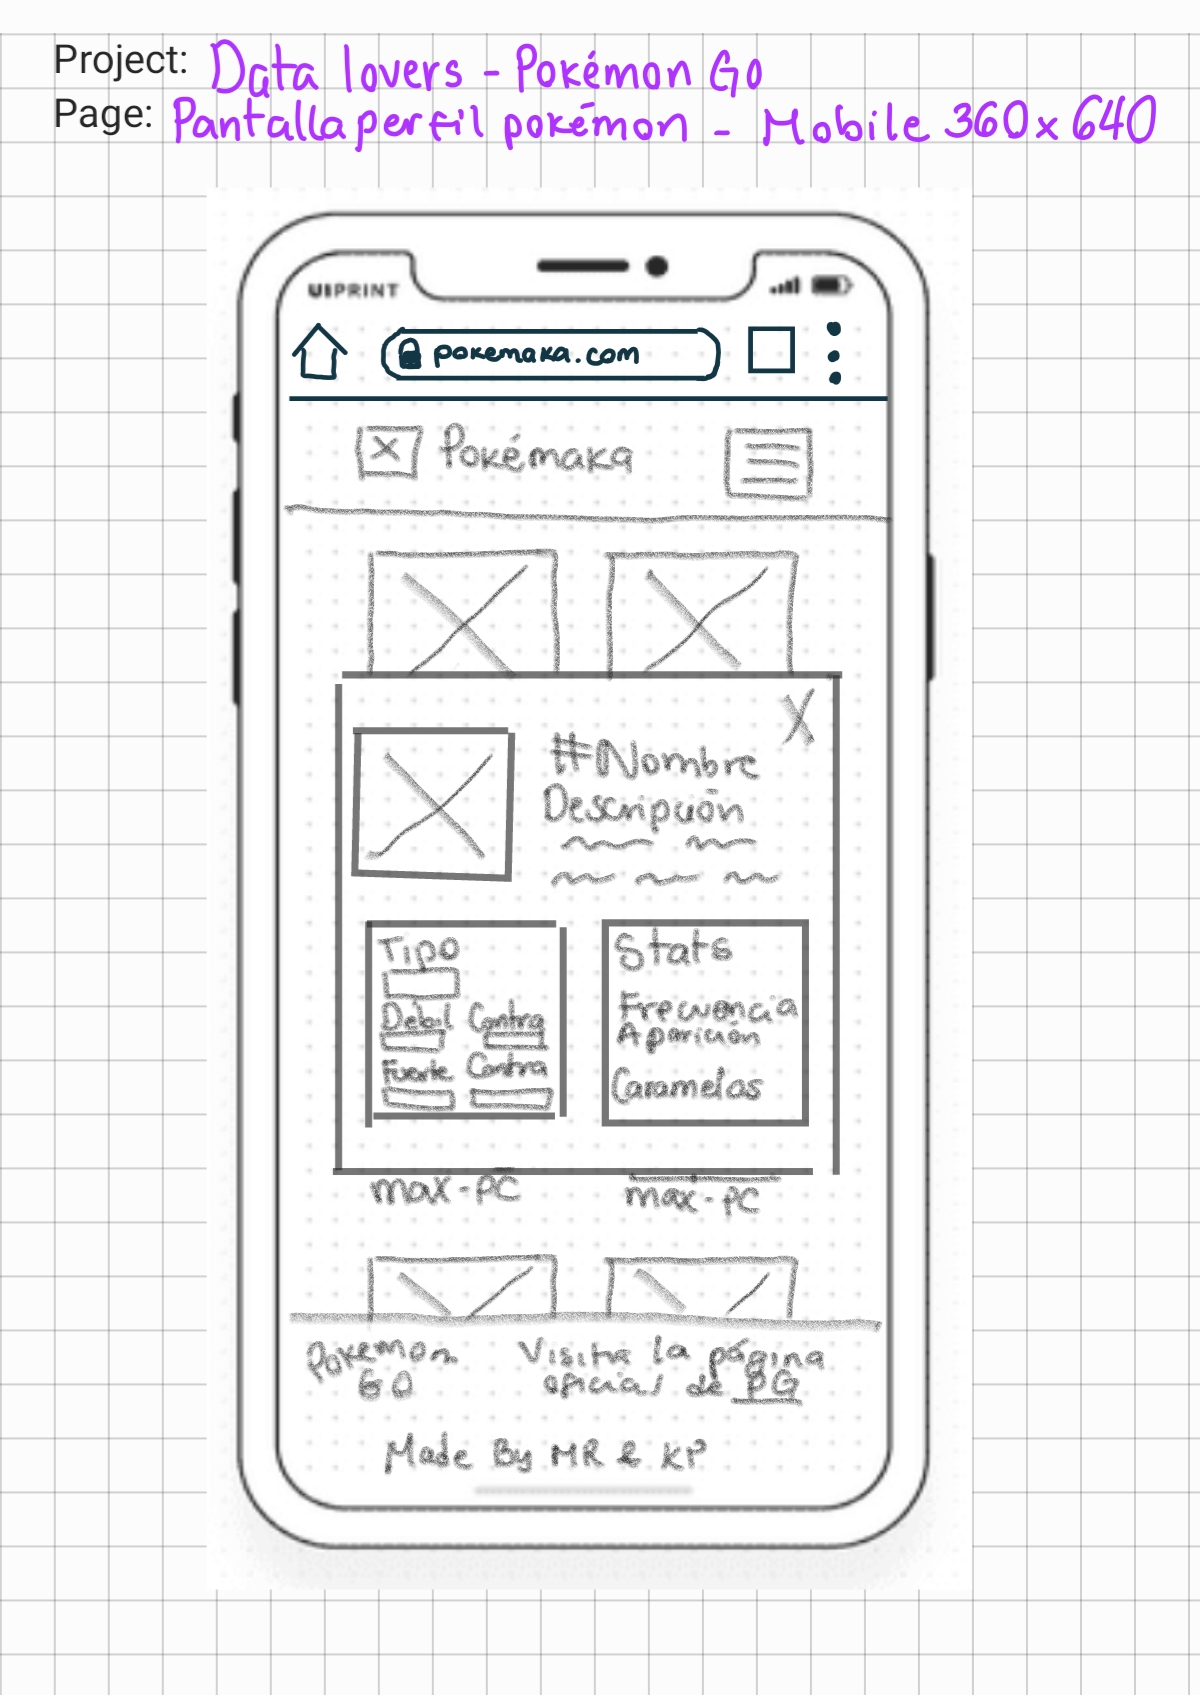 Project: Data lovers - Pokémon GO
Page: Pantalla perfil pokémon - Mobile 360x640
UIPRINT
pokemaka.com
Pokémaka
X
#Nombre
Descripción
Tipo
Debil Contra
Fuerte Contra
Stats
Frecuencia
Aparición
Caramelos
max-PC max-PC
Pokemon
GO
Visita la página
oficial de PG
Made By MR & KP